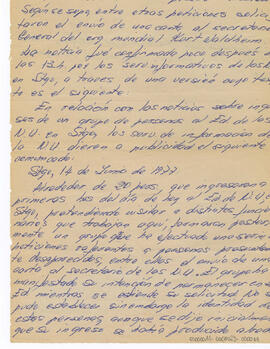 Según se supo, entre otras peticiones solici
taron el envío de una carta al secretario
General del org. mundial Kurt Waldheim
La noticia fue confirmada poco después de
las 13 h. por los serv. informativos de las N.U.
en Stgo, a traves de una versión cuyo tex-
to es el siguiente:
En relación con las noticias sobre ingre
sos de un grupo de personas al Ed. de las
N.U. en Stgo, los serv. de información de
la N.U. dieron a publicidad el siguiente
comunicado:
Stgo, 14 de Junio de 1977.
Alrededor de 20 pers. que ingresaron a
primeras hrs del día de hoy al Ed de N.U,
Stgo, pretendiendo visitar a distintos funcio
narios que trabajan aquí, formaron
mente un grupo que ha efectuado una serie
peticiones referentes a personas presuntamen
te desaparecidas, entre ellas el envío de una
carta al secretario de las N.U. El grupo ha
manifestado su intención de permanecer en el
Ed mientras se su solicitud. No
pudo establecer sin embargo la identidad de
estas personas, aunque se dijo inicialmente
que su ingreso se había producido a